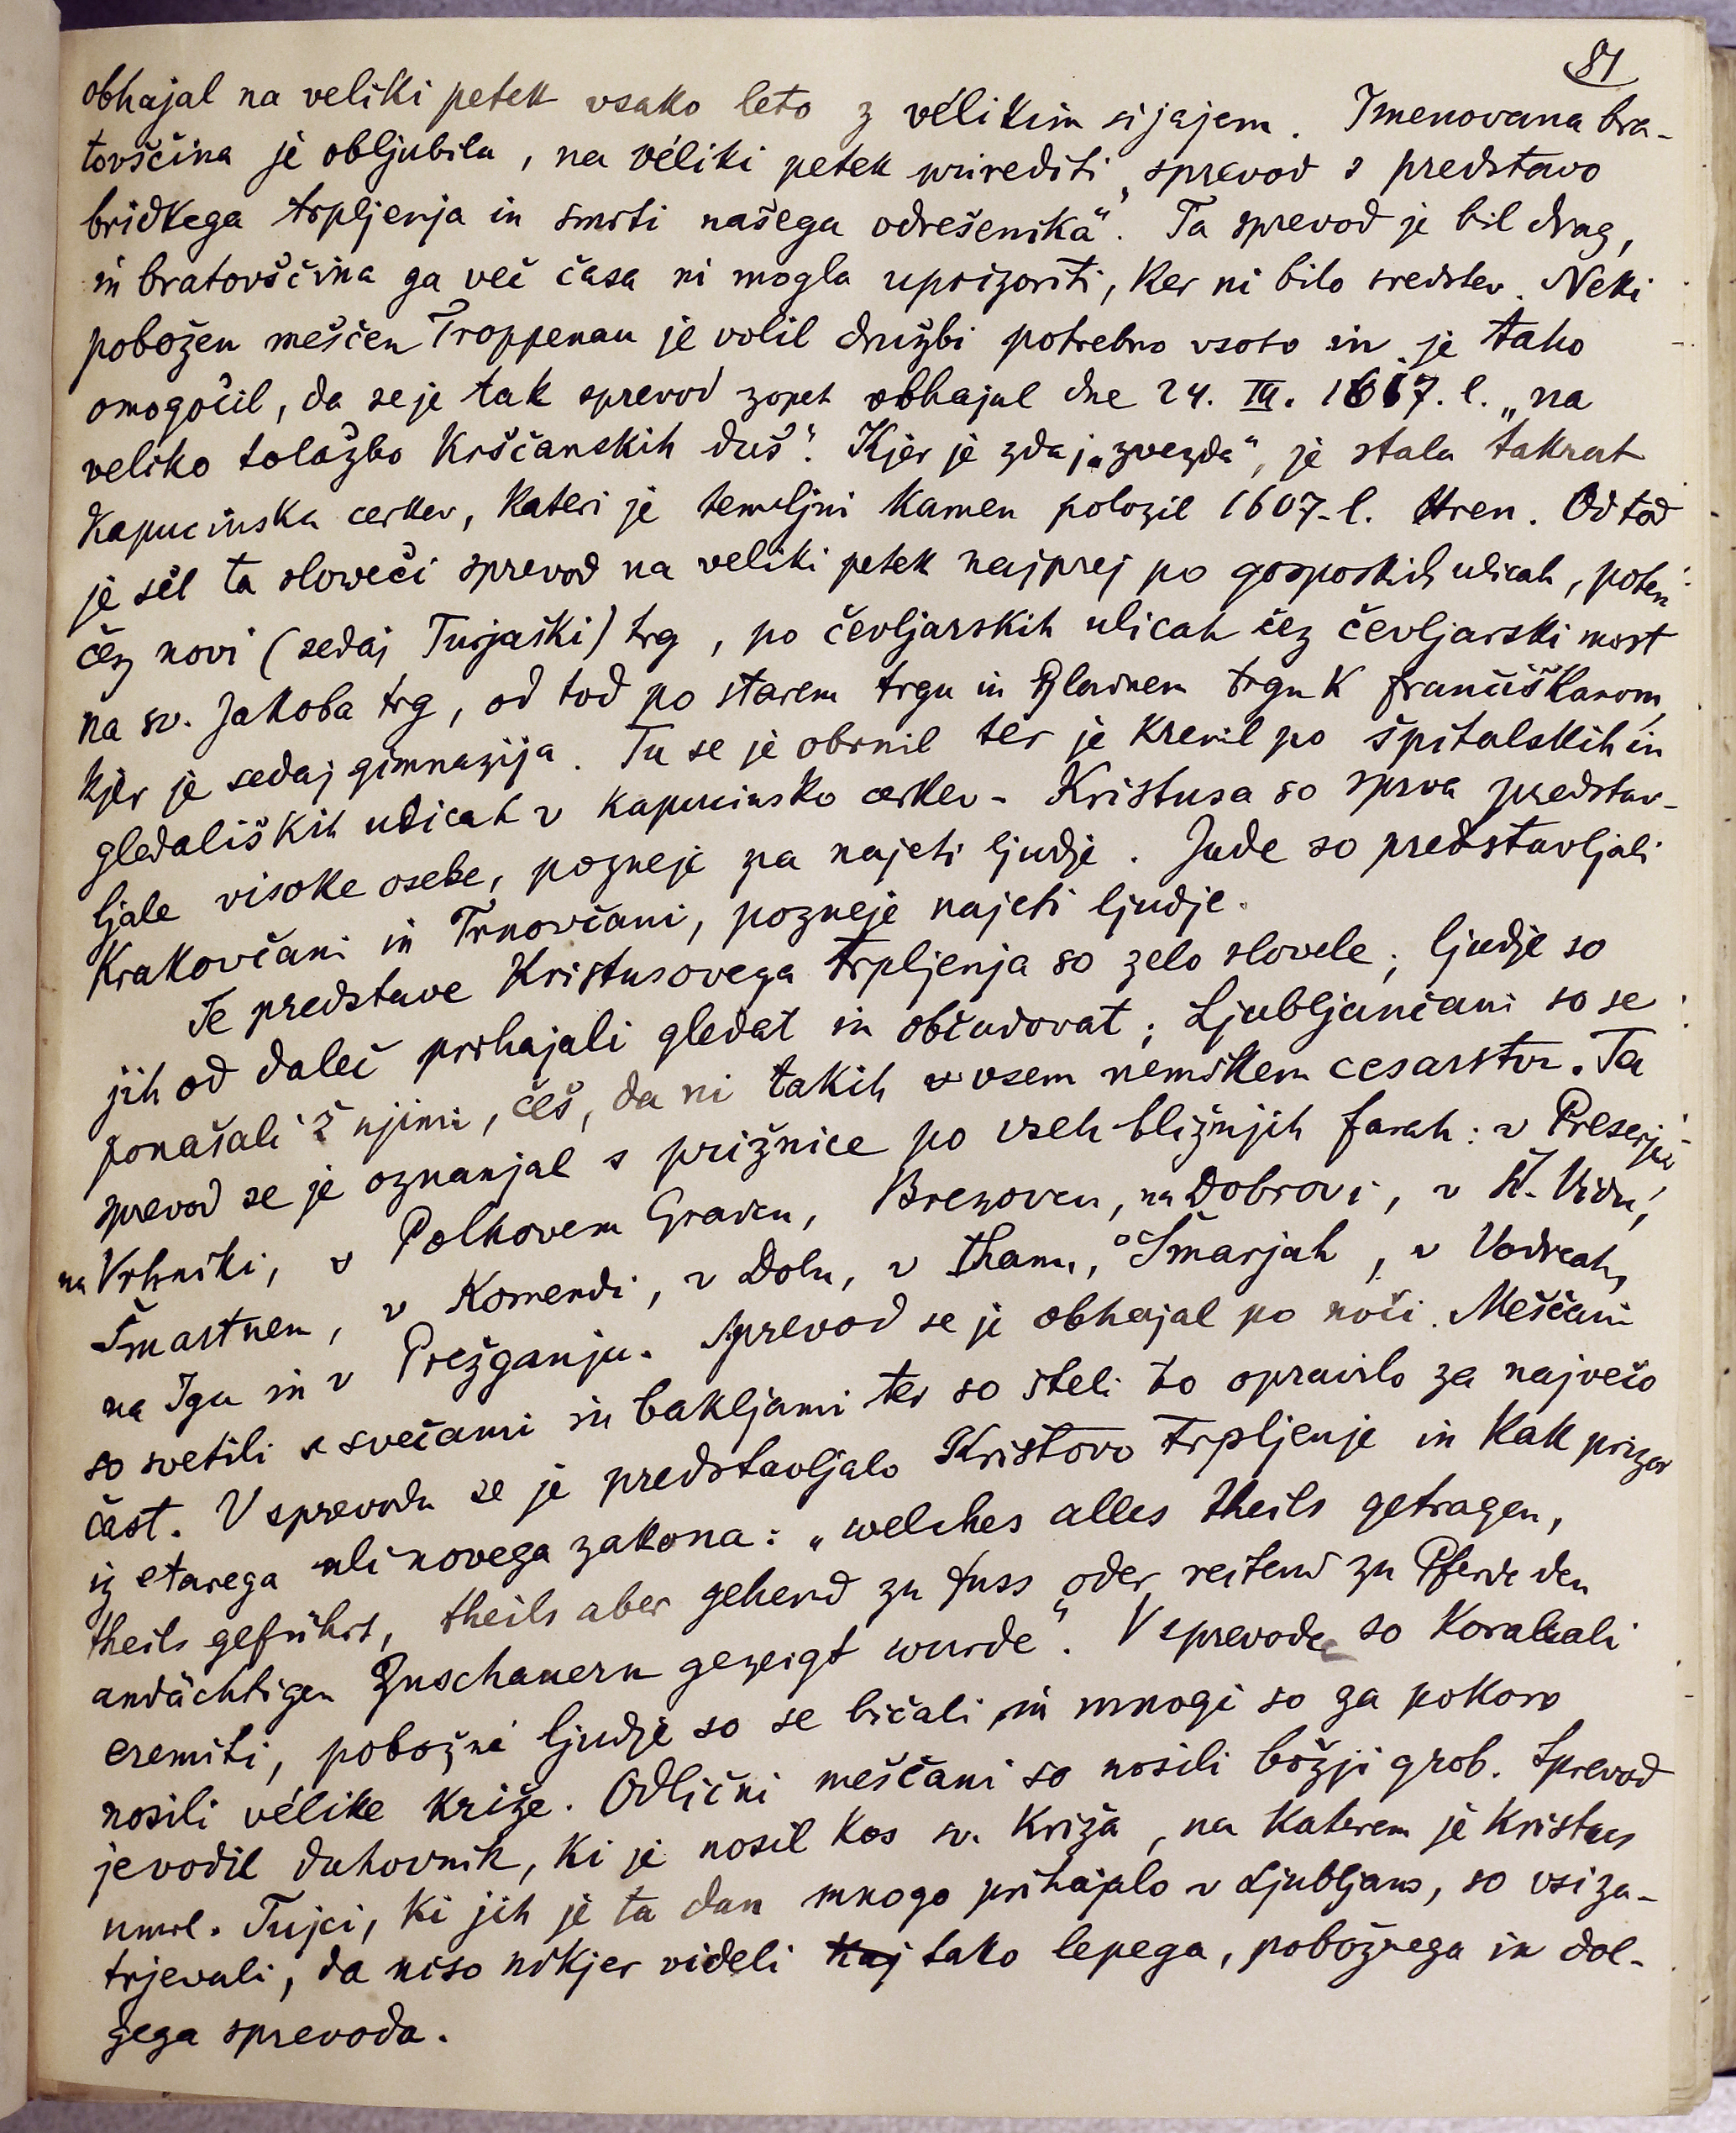 81
obhajal na veliki petek vsako leto z vélikim sijajem. Imenovana bra-
tovščina je obljubila, na véliki petek prirediti „sprevod s predstavo
bridkega trpljenja in smrti našega odrešenika“. Ta sprevod je bil drag,
in bratovščina ga več časa ni mogla uprizoriti, ker ni bilo sredstev. Neki
pobožen meščen Troppenau je volil družbi potrebno vsoto in je tako
omogočil, da se je tak sprevod zopet obhajal dne 24. III. 1617. l. „na
veliko tolažbo krščanskih duš“. Kjer je zdaj „zvezda“, je stala takrat
kapucinska cerkev, kateri je temeljni kamen položil 1607. l. Hren. Od tod
je šel ta sloveči sprevod na veliki petek najprej po gosposkih ulicah, potem
čez novi (sedaj Turjaški) trg, po čevljarskih ulicah čez čevljarski most
na sv. Jakoba trg, od tod po starem trgu in glavnem trgu k frančiškanom,
kjer je sedaj gimnazija. Tu se je obrnil ter je krenil po špitalskih in
gledaliških ulicah v kapucinsko cerkev. Kristusa so sprva predstav-
ljale visoke osebe, pozneje pa najeti ljudje. Jude so predstavljali
Krakovčani in Trnovčani, pozneje najeti ljudje.
Te predstave Kristusovega trpljenja so zelo slovele; ljudje so
jih od daleč prihajali gledat in občudovat; Ljubljančani so se
ponašali ž njimi, češ, da ni takih v vsem nemškem cesarstvu. Ta
sprevod se je oznanjal s prižnice po vseh bližnjih farah: v Preserju,
na Vrhniki, v Polhovem Gradcu, Brezovcu, na Dobrovi, v Št. Vidu,
Šmartnem, v Komendi, v Dolu, v Ihanu, Šmarjah, v Vodicah,
na Igu in v Prežganju. Sprevod se je obhajal po noči. Meščani
so svetili s svečami in bakljami ter so šteli to opravilo za največo
čast. V sprevodu se je predstavljalo Kristovo trpljenje in kak prizor
iz starega ali novega zakona: „welches alles theils getragen,
theils geführt, theils aber gehend zu fuss oder reitend zu Pferde den
andächtigen Zuschauern gezeigt wurde“. V sprevodu so korakali
eremiti, pobožni ljudje so se bičali in mnogi so za pokoro
nosili vélike križe. Odlični meščani so nosili božji grob. Sprevod
je vodil duhovnik, ki je nosil kos sv. križa, na katerem je Kristus
umrl. Tujci, ki jih je ta dan mnogo prihajalo v Ljubljano, so vsi za-
trjevali, da niso nikjer videli kaj tako lepega, pobožnega in dol-
gega sprevoda.